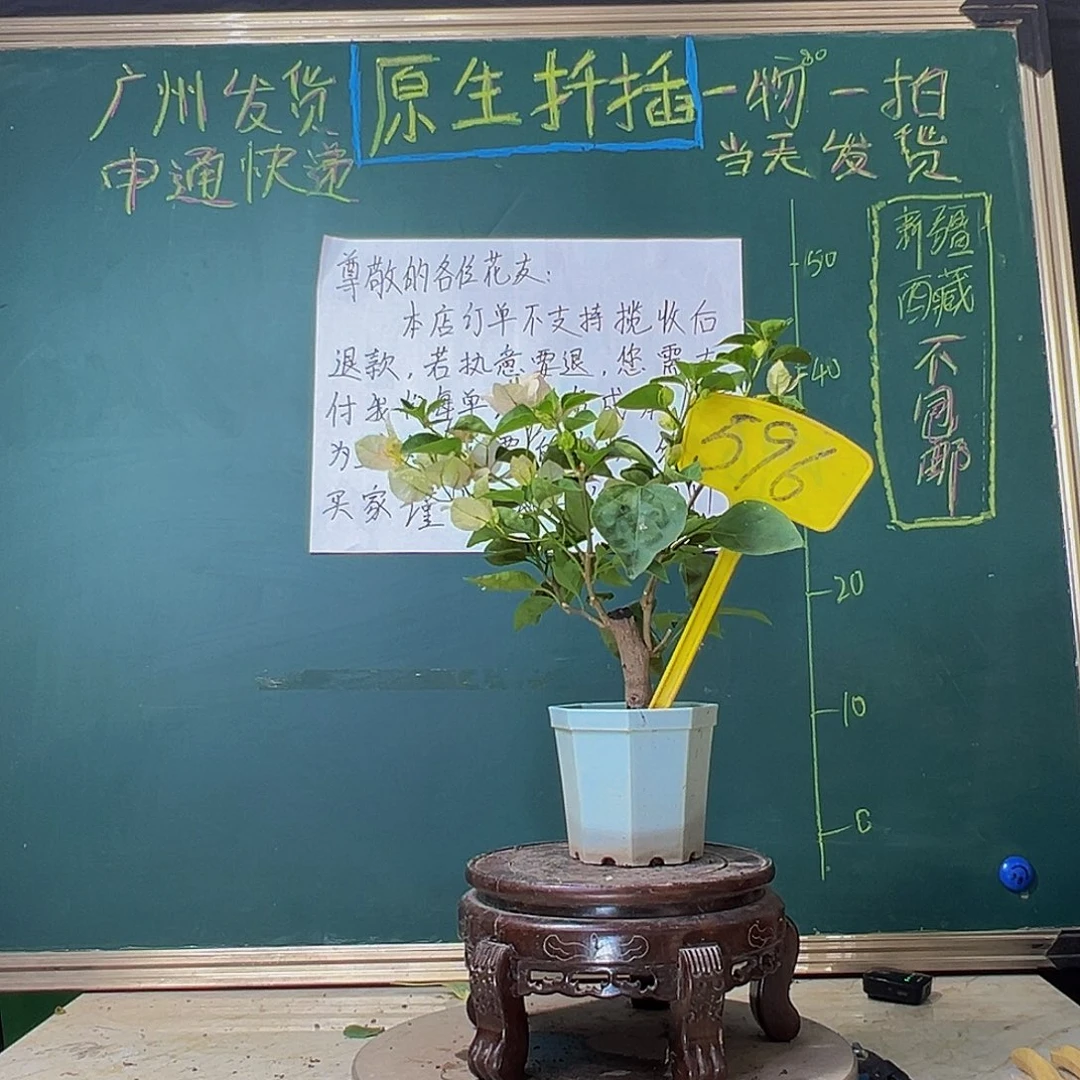 广州发货
申通快递
原生扦插
一物一拍
80
当天发货
新疆
西藏
不
包
邮
50
40
20
10
0
尊敬的各位花友:
本店订单不支持揽收后
退款,若执意要退,您需支
付我
每单
为
买家
谨
596